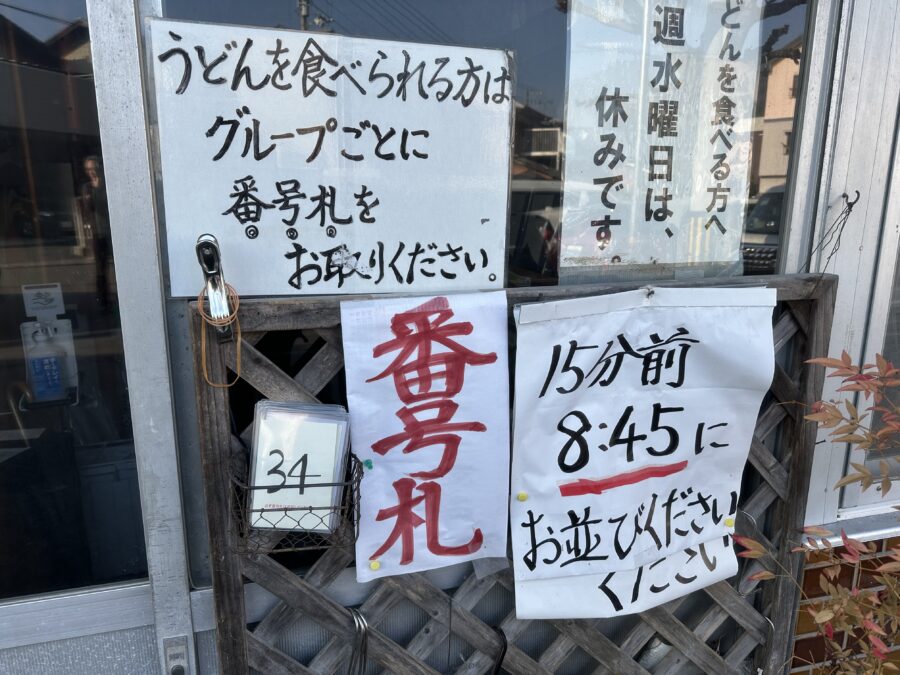 うどんを食べられる方は
グループごとに
番号札を
お取りください。
どんを食べる方へ
週水曜日は、
休みです。
34
番号札
15分前
8:45に
お並びください
ください